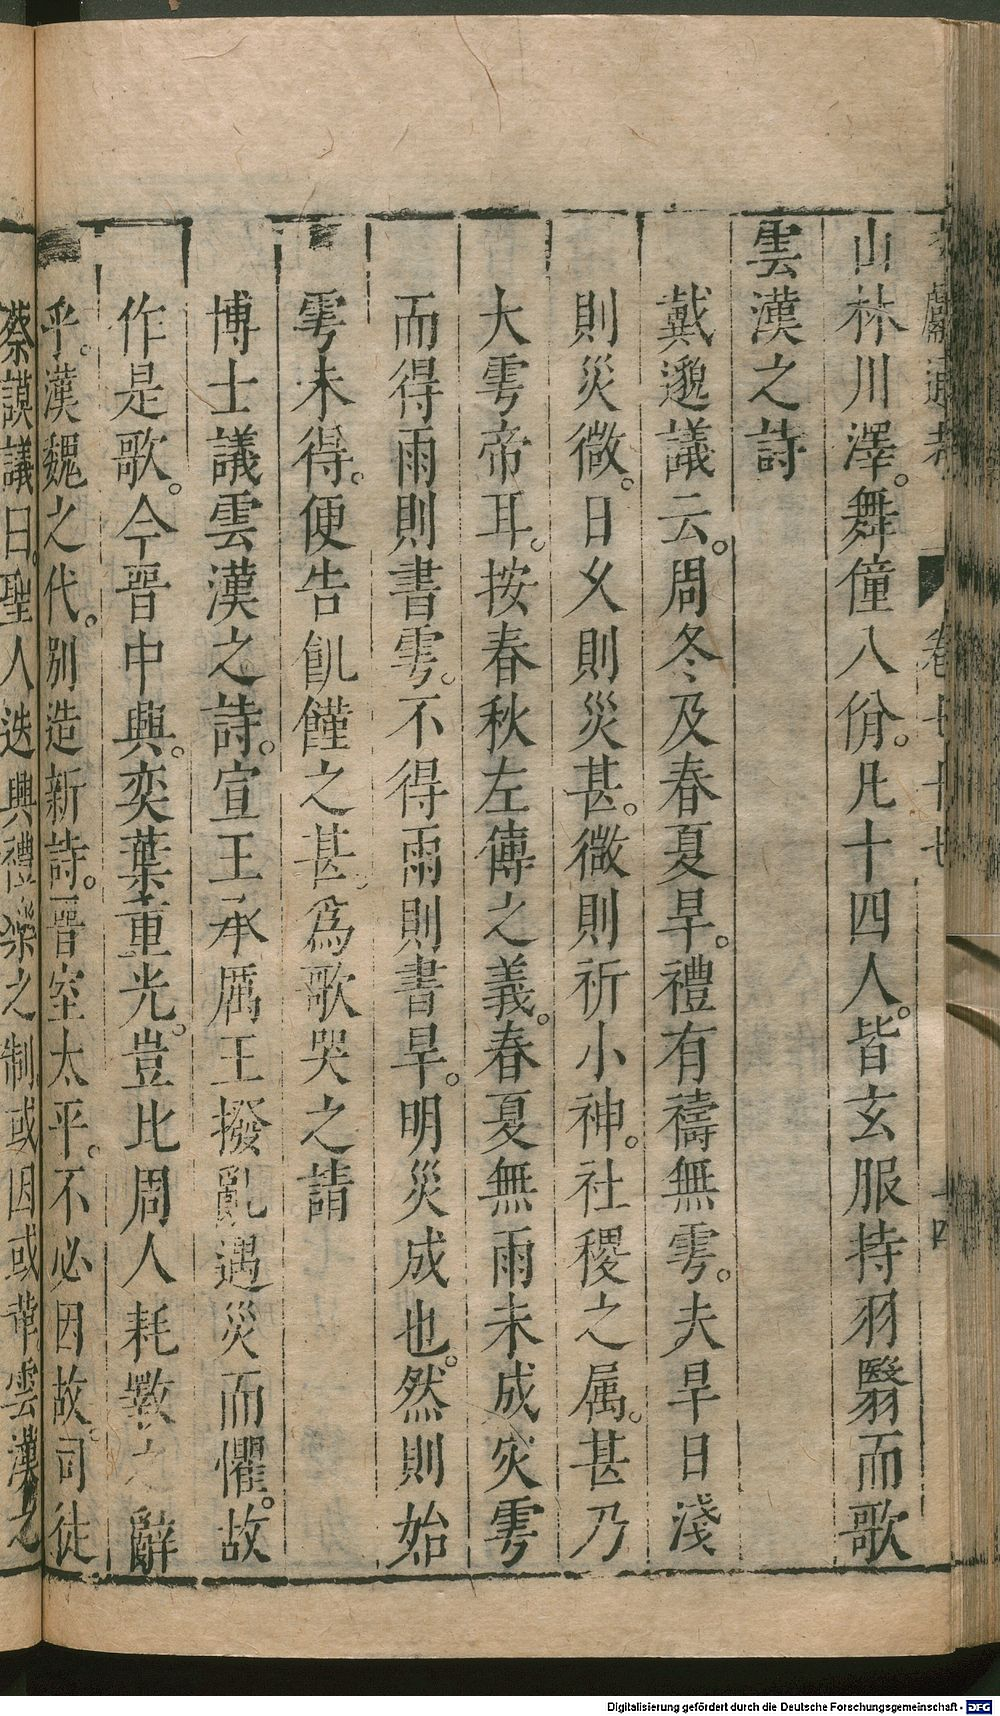 山林川澤。舞僮八佾。凡十四人。皆玄服持羽翳而歌
雲漢之詩
戴邈議云。周冬及春夏旱。禮有禱無雩。夫旱日淺
則災微。日乆則災甚。微則祈小神。社稷之属。甚乃
大雩帝耳。按春秋左傳之義。春夏無雨未成災雩
而得雨則書雩。不得雨則書旱。明災成也。然則始
雩未得。便告飢饉之甚。爲歌哭之請
博士議雲漢之詩。宣王承厲王撥亂遇災而懼。故
作是歌。今晉中興。奕葉重光。豈比周人耗斁之辭
乎。漢魏之代。別造新詩。晉室太平。不必因故。司徒
蔡謨議曰。聖人迭興禮樂之制或因或革雲漢之
Digitalisierung gefördert durch die Deutsche Forschungsgemeinschaft - DFG